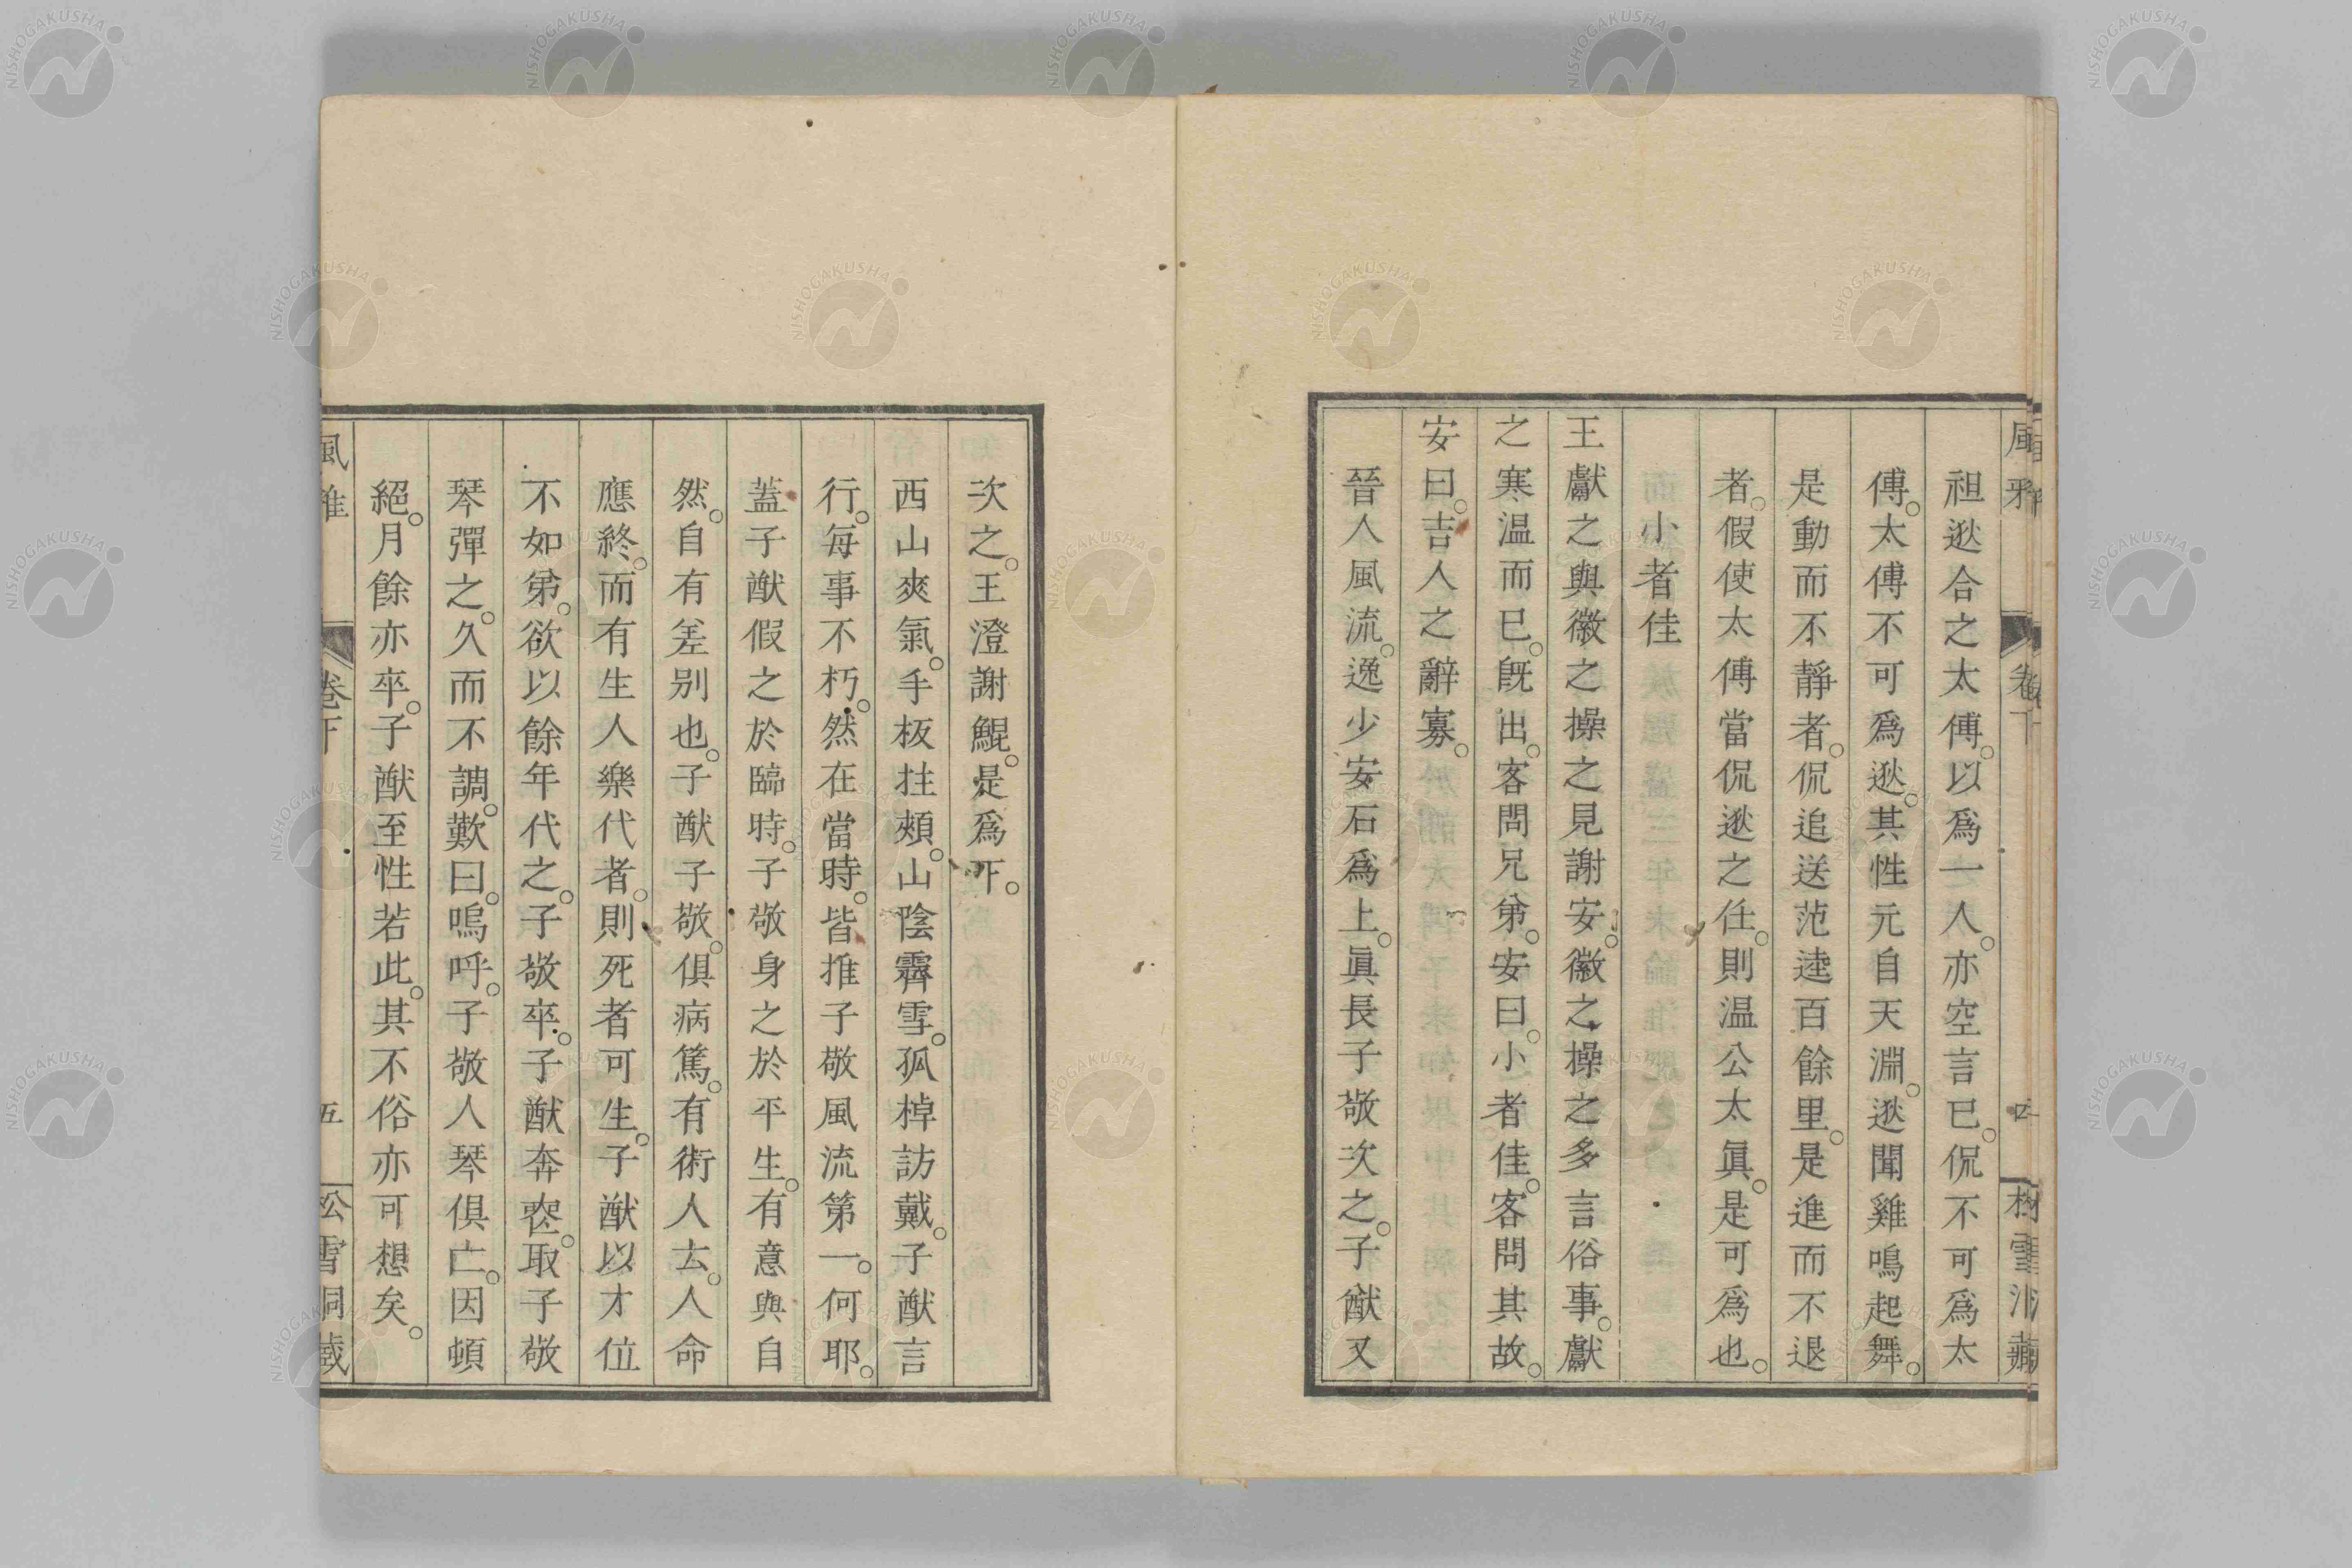 祖逖合之太傅。以爲一人。亦空言已。侃不可爲太
傅。太傅不可爲逖。其性元自天淵。逖聞雞鳴起舞。
是動而不靜者。侃追送范逵百餘里。是進而不退
者。假使太傅當侃逖之任。則温公太眞。是可爲也。
小者佳
王獻之與徽之操之見謝安。徽之操之多言俗事。獻
之寒温而已。旣出。客問兄弟。安曰。小者佳。客問其故。
安曰。吉人之辭寡。
晉人風流。逸少安石爲上。眞長子敬次之。子猷又
次之。王澄謝鯤。是爲下。
西山爽氣。手板拄頰。山陰霽雪。孤棹訪戴。子猷言
行。每事不朽。然在當時。皆推子敬風流第一。何耶。
蓋子猷假之於臨時。子敬身之於平生。有意與自
然。自有差別也。子猷子敬。俱病篤。有術人云。人命
應終。而有生人樂代者。則死者可生。子猷以才位
不如弟。欲以餘年代之。子敬卒。子猷奔喪。取子敬
琴彈之。久而不調。歎曰。嗚呼。子敬人琴俱亡。因頓
絕。月餘亦卒。子猷至性若此。其不俗亦可想矣。
風雅 卷下 五 松雪洞藏
NISHOGAKUSHA